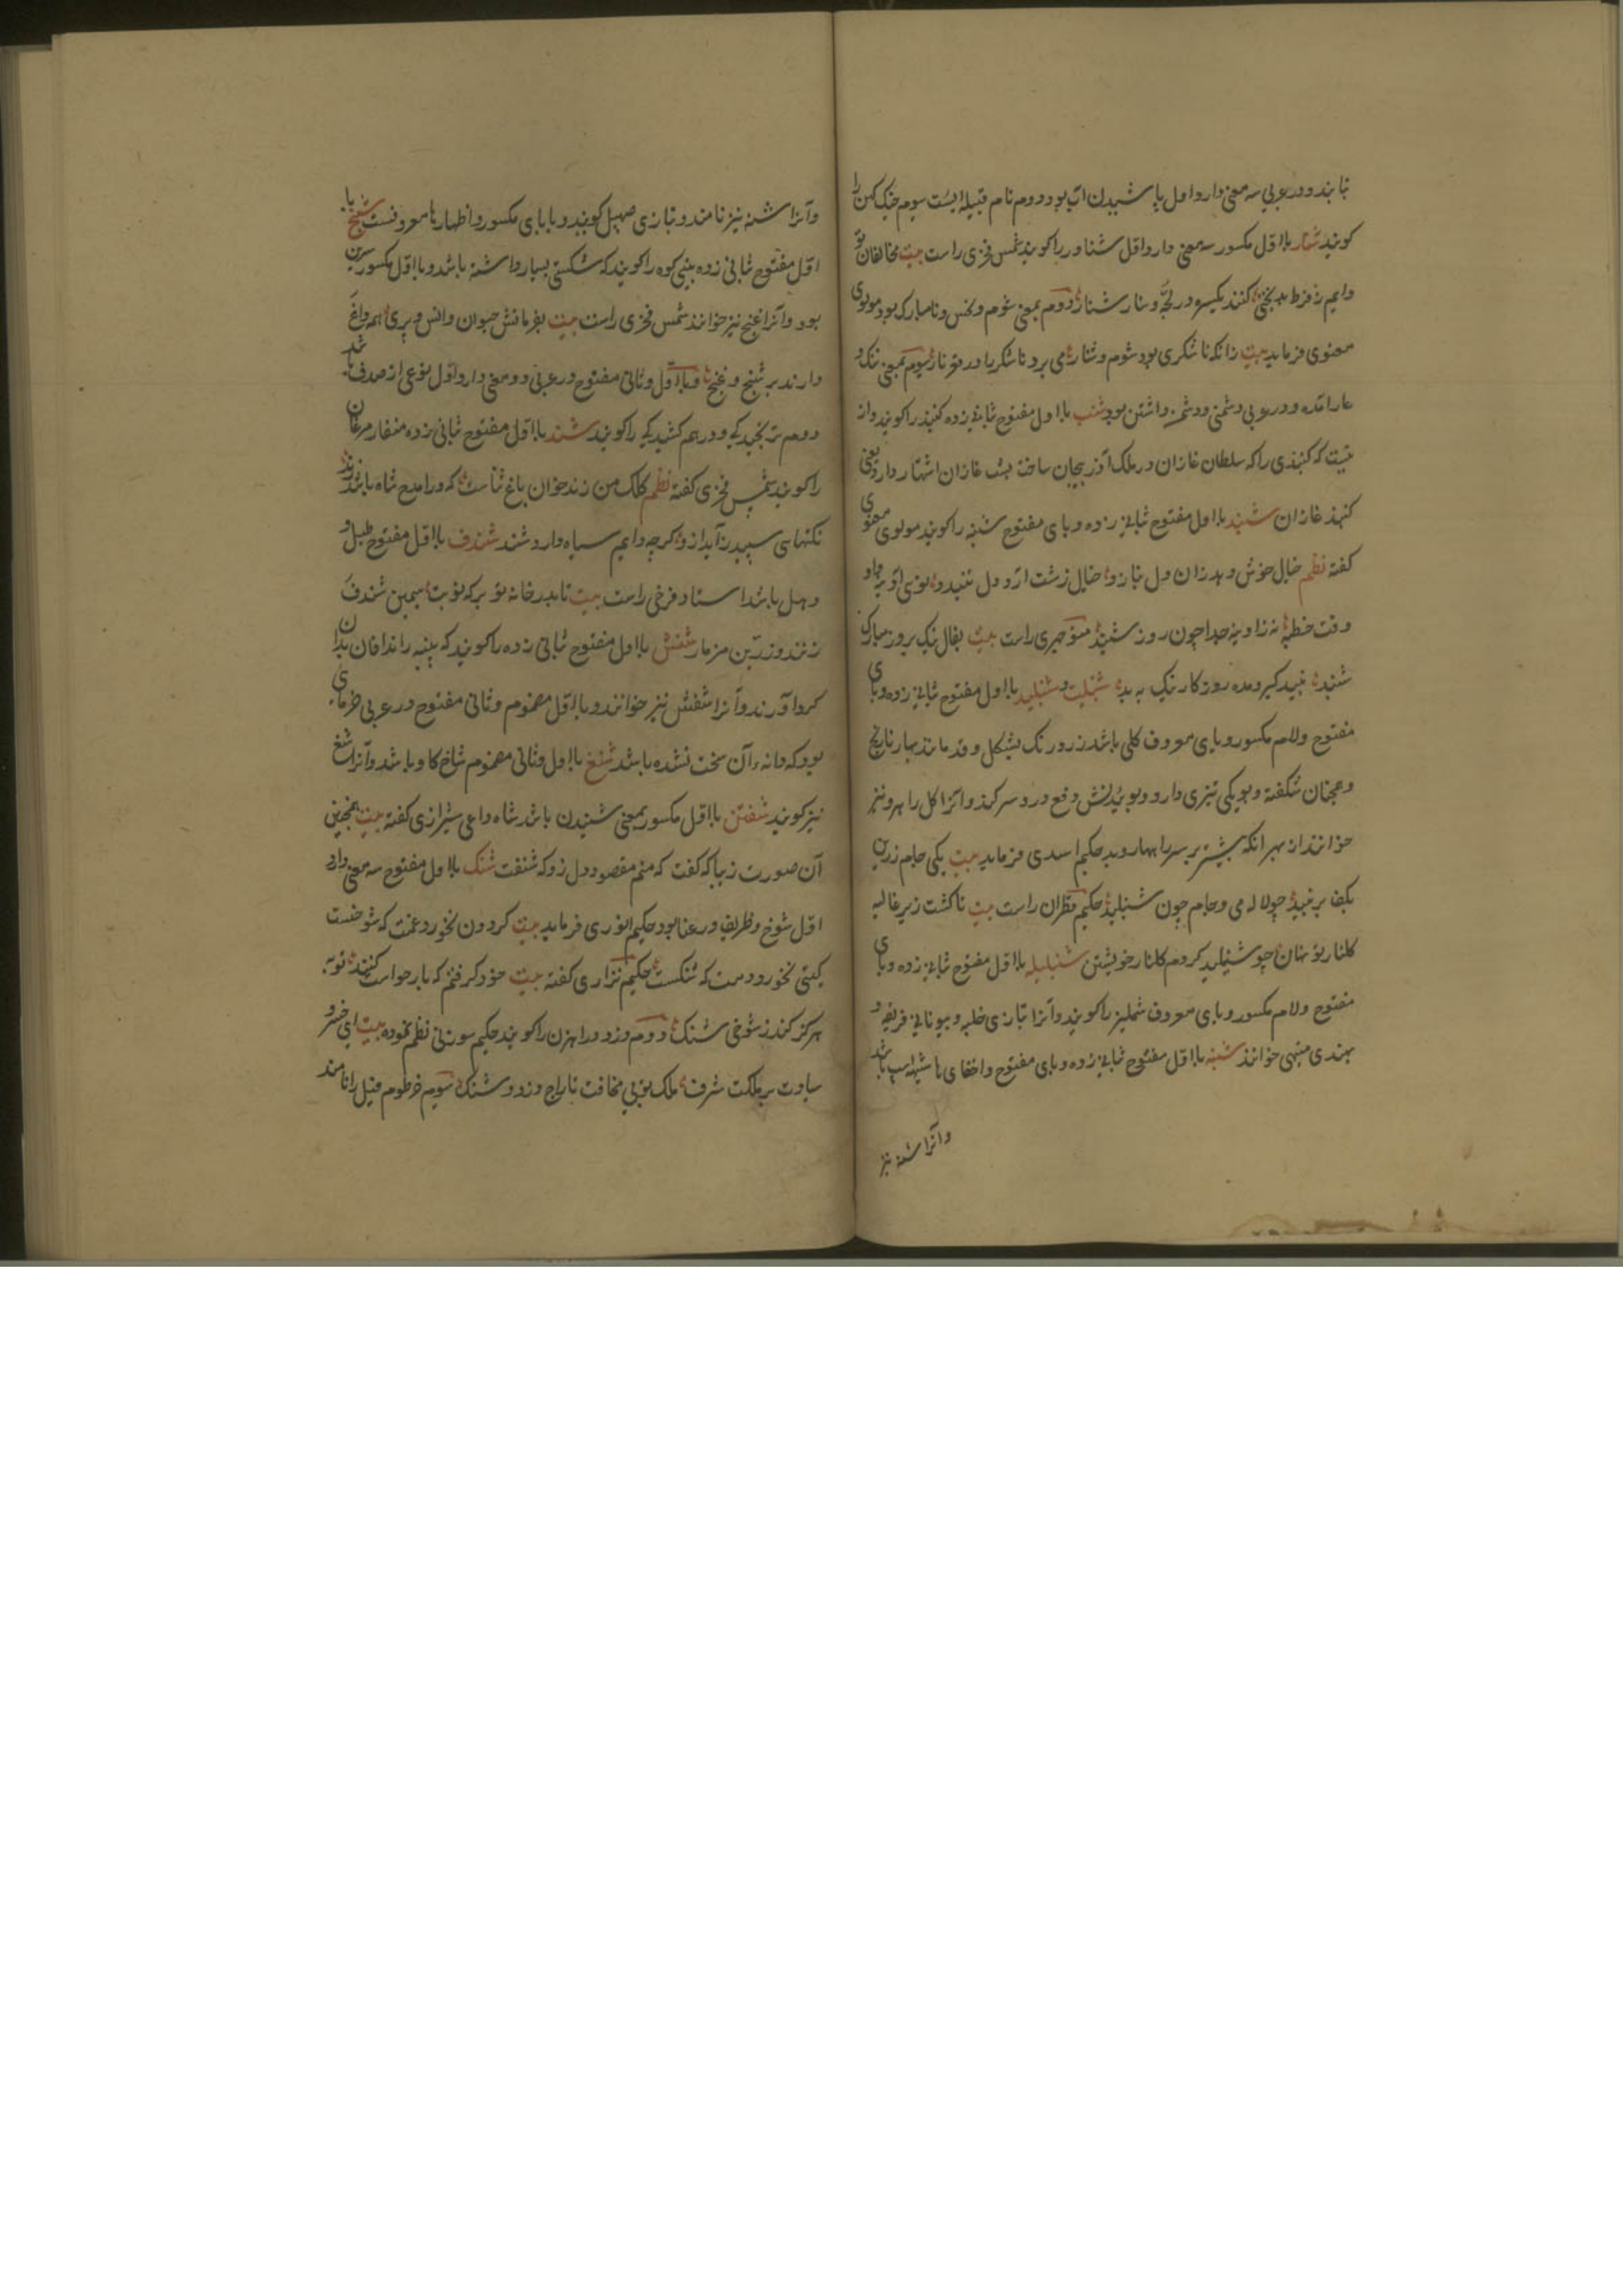 نابند و در عربی سه معنی دارد اول پاشیدن آب بود دوم نام قبیله ایست سیوم خیک کهن را
کویند شنار با اول مکسور سه معنی دارد اول شناور را کویند شمس فخری راست بیت مخالفان تو
دایم ز فرط بدبختی کنند یکسره در لجه وسنار شنار دوم بمعنی شوم و نحس و نامبارک بود مولوی
معنوی فرماید بیت زانکه ناشکری بود شوم و شنار می برد ناشکر را در قعر نار سیوم بمعنی ننک و
عار آمده و در عربی دشمنی و دشمن داشتن بود شنب با اول مفتوح ثانی زده کنبد را کویند و از
که کنبذی را که سلطان غازان در ملک آذربیجان ساخت شنب غازان اشتهار دارد یعنی
کنبذ غازان شنبد با اول مفتوح ثانی زده و بای مفتوح شنبه را کویند مولوی معنوی
کفته نظم خیال خوش دهد زان دل بنازد خیال زشت آرد دل تنیدو
وقت خطبه نه زاوینه جدا چون روز شنبد منوچهری راست بیت بفال نیک بروز مبارک
شنبد نبید کیر و مده روزکار نیک به بد شنبلت و شنبلید با اول مفتوح ثانی زده و بای
مفتوح ولام مکسور و یای معروف کلی باشد زرد رنک بشکل و قد مانند بهار نارنج
و همچنان شکفته و بویکی تیزی دارد و بوییدنش دفع درد سر کند و آنرا کل راهرو نیز
خوانند از بهر آنکه بیشتر بر سر راهها روید حکیم اسدی فرماید بیت یکی جام زرین
بکف پر نبید چو لاله می و جام چون شنبلید حکیم قطران راست بیت تا کشت زیر غالیه
کلنار تو نهان چو شنبلید کردم کلنار خویشتن شنبلیله با اول مفتوح ثانی زده و بای
مفتوح ولام مکسور و یای معروف شملیز را کویند و آنرا بتازی حلبه و بیونانی فریقه و
بهندی میتهی خوانند شنبه با اول مفتوح ثانی زده و بای مفتوح و اخفای ها شیهه اسپ باشد
و آنرا شنه نیز
و آنرا شنه نیز نامند و بتازی صهیل کویند و با بای مکسور و اظهار ها معروفست شنج با
اول مفتوح ثانی زده بینی کوه را کویند که شکستی بسیار داشته باشد و با اول مکسور سرین
بود و آنرا غنج نیز خوانند شمس فخری راست بیت بفرمانش حیوان و انس و پری همه داغ
دارند بر شنج و غنج و با اول و ثانی مفتوح در عربی دو معنی دارد اول نوعی از صدف باشد
دوم ترنجیدکی و درهم کشیدکی را کویند شند با اول مفتوح ثانی زده منقار مرغان
را کویند شمس فخری کفته نظم کلک من زندخوان باغ ثناست که در امدح شاه باشد زند
نکتهای سپید زاید ازو کرچه دایم سیاه دارد شند شندف با اول مفتوح طبل و
دهل باشد استاد فرخی راست بیت تا بدر خانه تو بر که نوبت سیمین شندف
زنند و زرین مزمار شنش با اول مفتوح ثانی زده را کویند که پنبه را ندافان بدان
کرد آورند و آنرا شفش نیز خوانند و با اول مضموم و ثانی مفتوح در عربی خرمای
بود که دانه آن سخت نشده باشد شنغ با اول و ثانی مضموم شاخ کاو باشد و آنرا شغ
نیز کویند شنفتن با اول مکسور بمعنی شنیدن باشد شاه داعی شیرازی کفته بیت همچنین
آن صورت زیبا که کفت که منم مقصود دل زو که شنفت شنک با اول مفتوح سه معنی دارد
اول شوخ و ظریف و رعنا بود حکیم انوری فرماید بیت کردون نخورد غمت که شوخست
کیتی نخوردت که شنکست حکیم نزاری کفته بیت خود کرفتم که باز خواست کنند توبه
هرکز کند ز شوخی شنک دوم دزد و راهزن را کویند حکیم سوزنی نظم نموده بیت ای خسرو
سیادت بر مملکت شرف ملک تو بی مخافت تاراج دزد و شنک سیوم خرطوم فیل را نامند